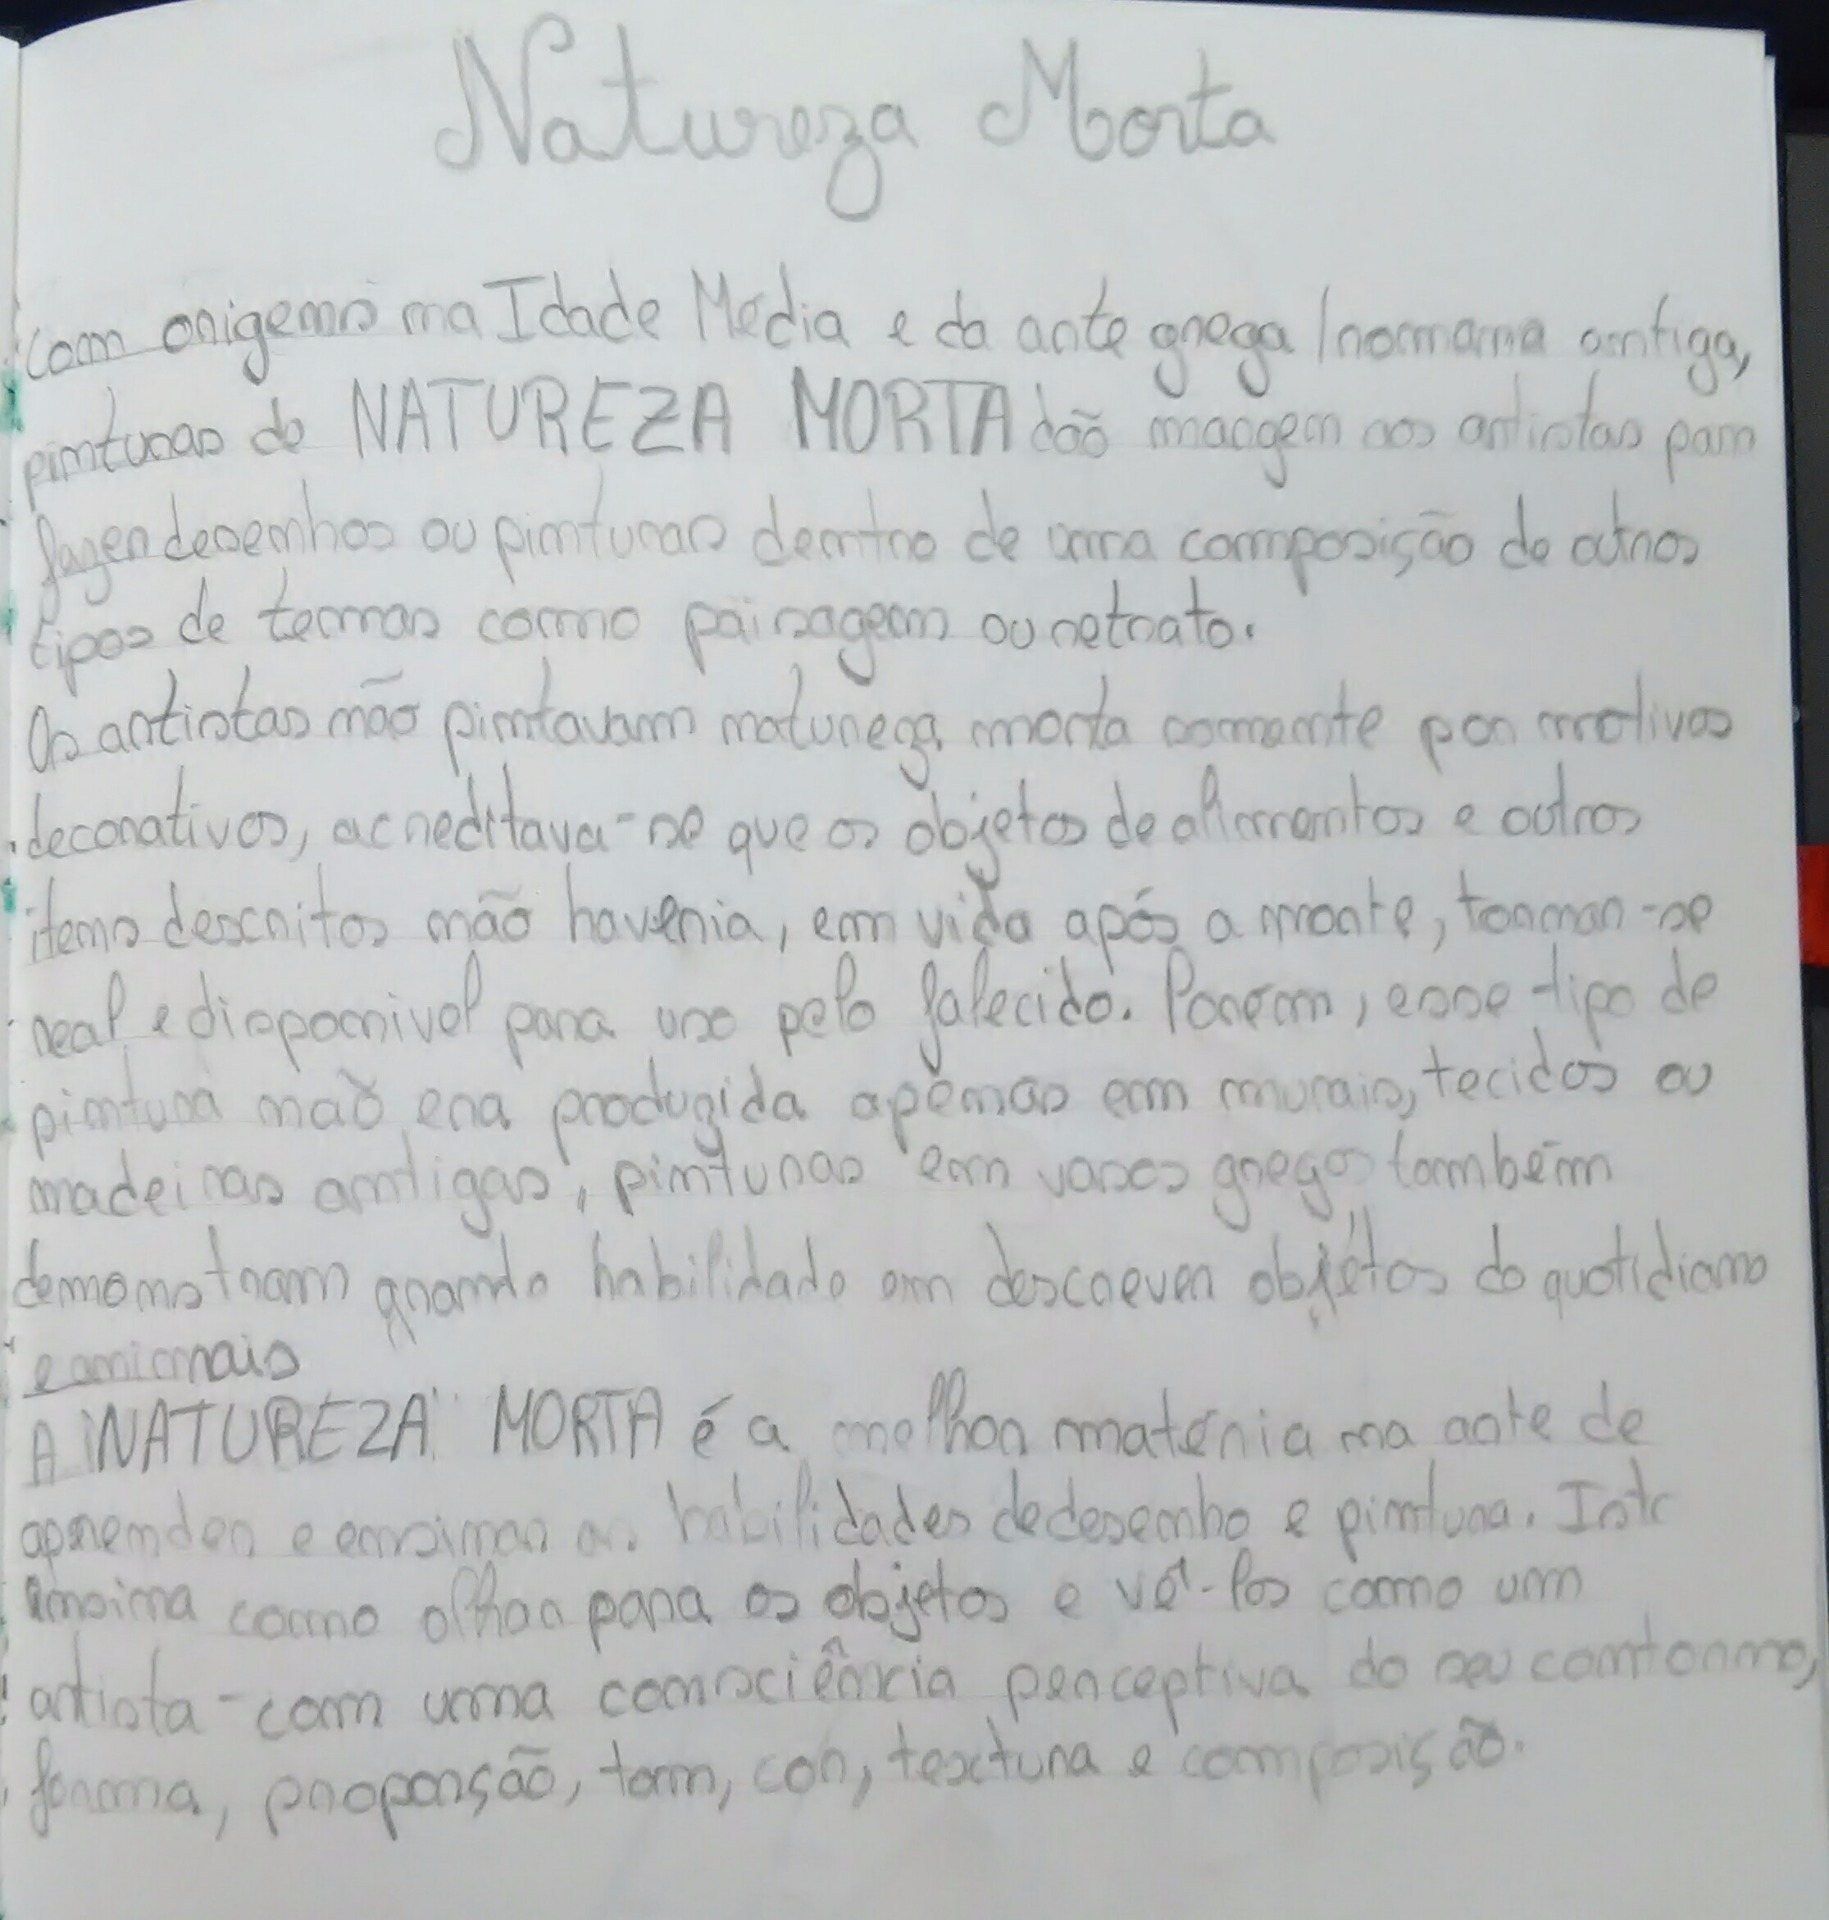 Natureza Morta
Com origens na Idade Média e da arte grega/romana antiga,
pinturas de NATUREZA MORTA dão margem aos artistas para
fazer desenhos ou pinturas dentro de uma composição de outros
tipos de temas como paisagem ou retrato.
Os artistas não pintavam natureza morta somente por motivos
decorativos, acreditava-se que os objetos de alimentos e outros
itens descritos não haveria, em vida após a morte, tornar-se
real e disponivel para uso pelo falecido. Porém, esse tipo de
pintura não era produzida apenas em murais, tecidos ou
madeiras antigas, pinturas em vasos gregos também
demonstram grande habilidade em descrever objetos do quotidiano
e animais
A NATUREZA MORTA é a melhor matéria na arte de
aprender e ensinar as habilidades de desenho e pintura. Isto
ensina como olhar para os objetos e vê-los como um
artista - com uma consciência perceptiva do seu contorno,
forma, proporção, tom, cor, textura e composição.